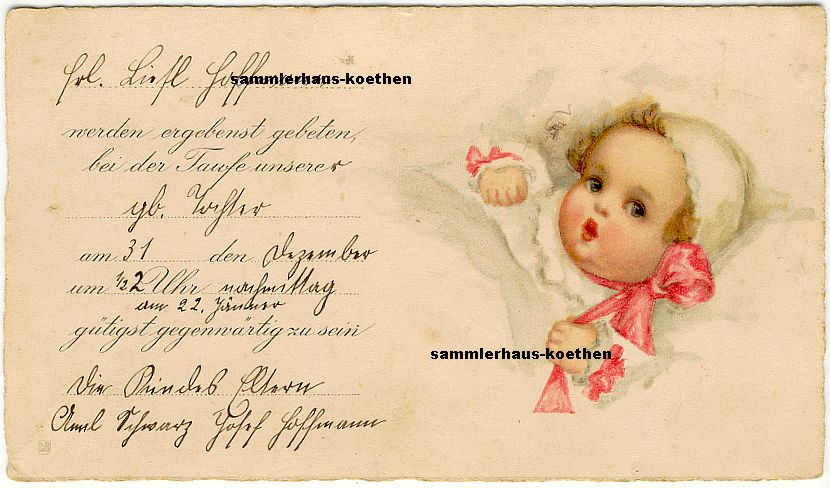 Frl. Liesl Hoffmann
sammlerhaus-koethen
werden ergebenst gebeten,
bei der Taufe unserer
gb. Tochter
am 31 den Dezember
um ½2 Uhr nachmittag
am 22. Jänner
gütigst gegenwärtig zu sein
sammlerhaus-koethen
Die Kindes Eltern
Schwarz Josef Hoffmann